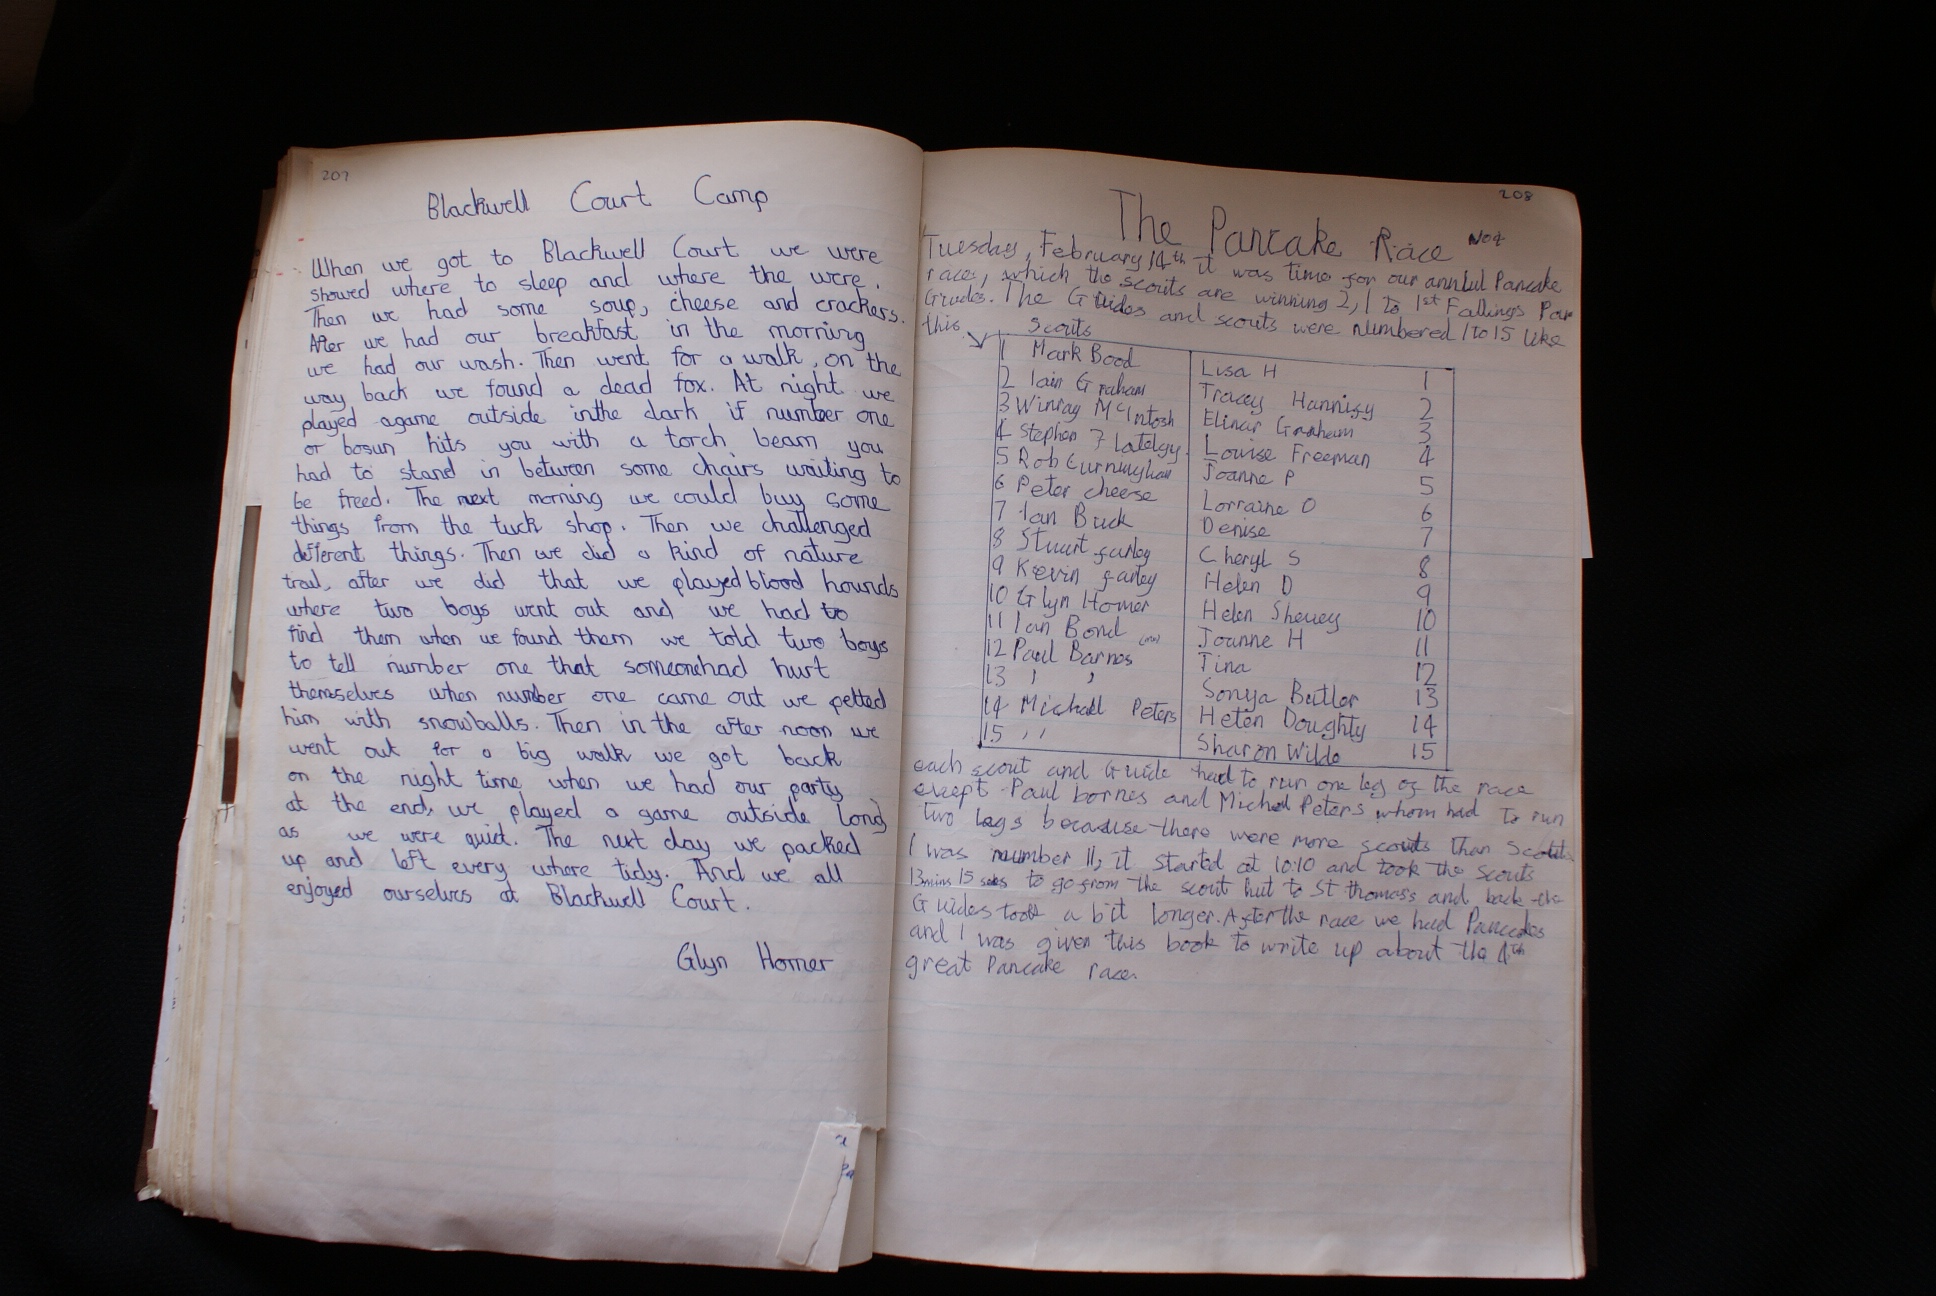 207
Blackwell Court Camp
When we got to Blackwell Court we were
showed where to sleep and where the were.
Then we had some soup, cheese and crackers.
After we had our breakfast in the morning
we had our wash. Then went for a walk, on the
way back we found a dead fox. At night we
played agame outside inthe dark if number one
or bosun hits you with a torch beam you
had to stand in between some chairs waiting to
be freed. The next morning we could buy some
things from the tuck shop. Then we challenged
different things. Then we did a kind of nature
trail, after we did that we played blood hounds
where two boys went out and we had to
find them when we found them we told two boys
to tell number one that someonehad hurt
themselves when number one came out we petted
him with snowballs. Then in the after noon we
went out for a big walk we got back
on the night time, when we had our party
at the end, we played a game outside long
as we were quiet. The next day we packed
up and left every where tidy. And we all
enjoyed ourselves at Blackwell Court.
Glyn Homer
208
The Pancake Race No4
Tuesday, February 14th it was time for our annual Pancake
race, which the scouts are winning 2,1 to 1st Fallings Par
Guides. The Guides and scouts were numbered 1 to 15 like
this scouts
1 Mark Bood Lisa H 1
2 Iain Graham Tracey Hannigy 2
3 Winray McIntosh Elinar Graham 3
4 Stephen Louise Freeman 4
5 Rob Cunningham Joanne P 5
6 Peter cheese Lorraine O 6
7 Ian Buck Denise 7
8 Stuart farley Cheryl S 8
9 Kevin farley Helen D 9
10 Glyn Homer Helen 10
11 Ian Bond (me) Joanne H 11
12 Paul Barnes Tina 12
13 , , Sonya Butlor 13
14 Michall Peters Helen Doughty 14
15 , , Sharon Wilde 15
each scout and Guide had to run one leg of the race
except Paul bornes and Michal Peters whom had To run
two legs because there were more scouts than scouts
I was number 11, it started at 10:10 and took the scouts
13mins 15 secs to go from the scout hut to St thomass and back the
Guides took a bit longer. After the race we had Pancakes
and I was given this book to write up about the 4th
great Pancake race.